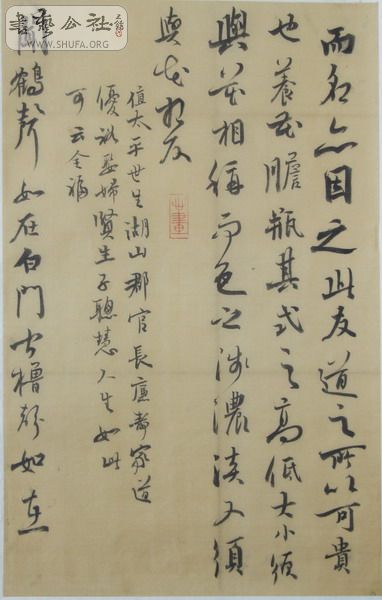 書藝公社
WWW.SHUFA.ORG
而名亦因之此友道之所以可貴
也養花膽瓶其式之高低大小須
與花相稱而色之淺濃淡又須
與花相反
值太平世生湖山郡官長廉靜家道
優裕娶婦賢生子聰慧人生如此
可云全福
聞鶴聲如在白門聞櫓聲如在